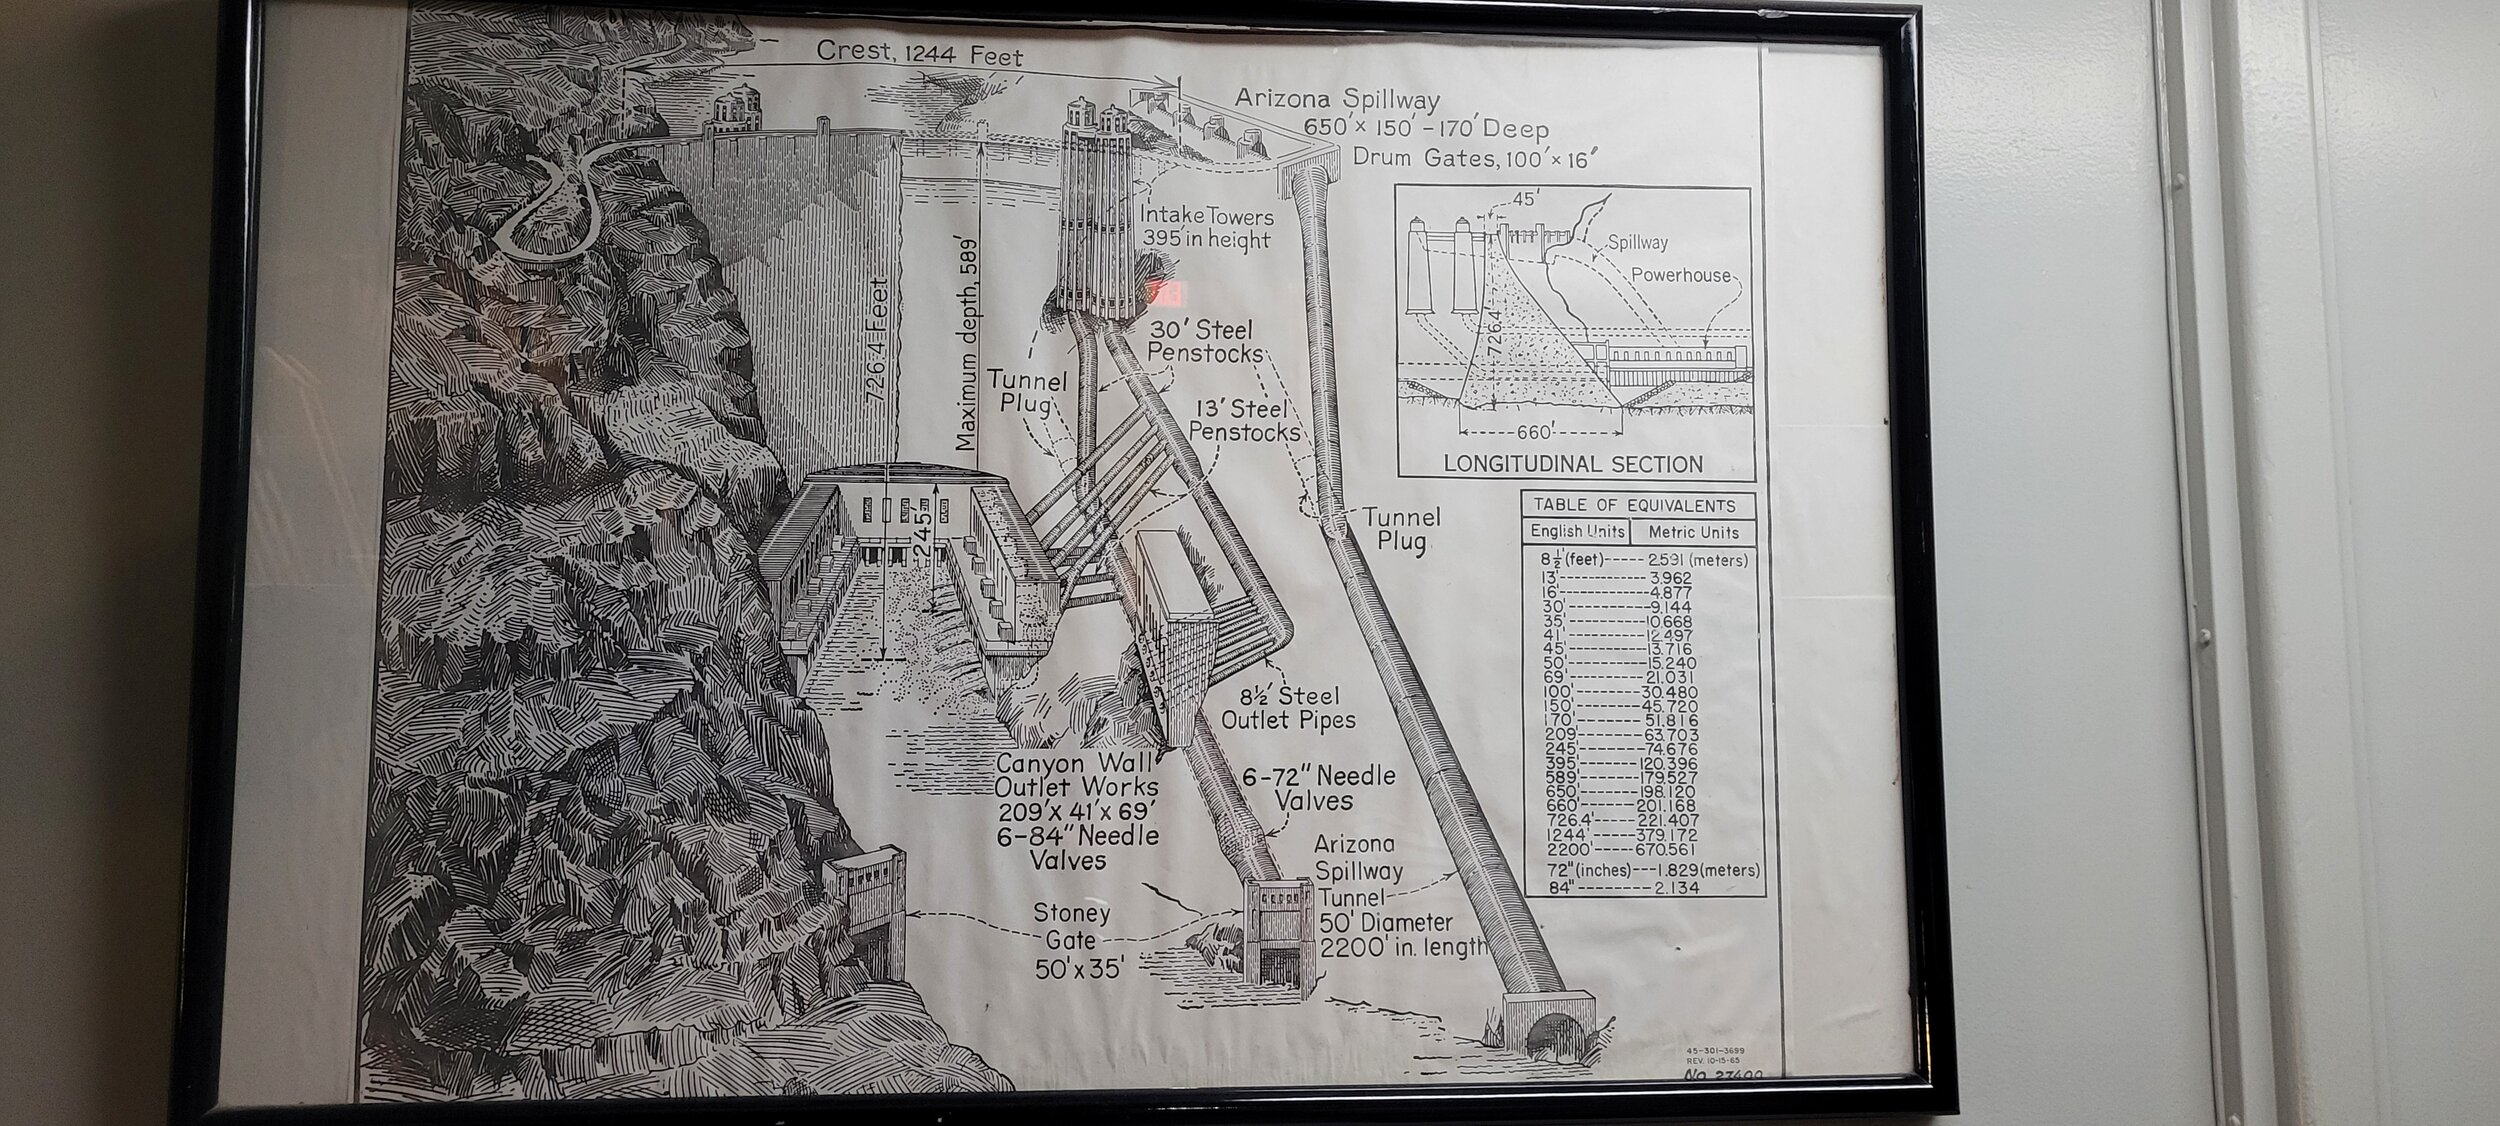 Crest, 1244 Feet
Arizona Spillway
650' x 150' - 170' Deep
Drum Gates, 100' x 16'
726.4 Feet
Maximum depth, 589'
Intake Towers
395' in height
30' Steel
Penstocks
Tunnel
Plug
13' Steel
Penstocks
245'
Tunnel
Plug
8½' Steel
Outlet Pipes
Canyon Wall
Outlet Works
209' X 41' X 69'
6-84" Needle
Valves
6-72" Needle
Valves
Arizona
Spillway
Tunnel
50' Diameter
2200' in. length
Stoney
Gate
50' x 35'
45'
Spillway
Powerhouse
726.4'
660'
LONGITUDINAL SECTION
TABLE OF EQUIVALENTS
English Units Metric Units
8½'(feet)-----2.591 (meters)
13'-----3.962
16'-----4.877
30'-----9.144
35'-----10.668
41'-----12.497
45'-----13.716
50'-----15.240
69'-----21.031
100'-----30.480
150'-----45.720
170'-----51.816
209'-----63.703
245'-----74.676
395'-----120.396
589'-----179.527
650'-----198.120
660'-----201.168
726.4'-----221.407
1244'-----379.172
2200'-----670.561
72"(inches)---1.829(meters)
84"-----2.134
45-301-3699
REV. 10-15-65
No.